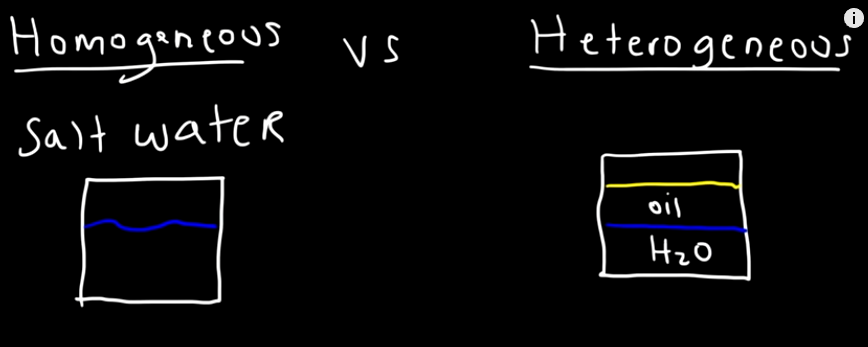 Homogeneous vs Heterogeneous
Salt water
oil
H2O